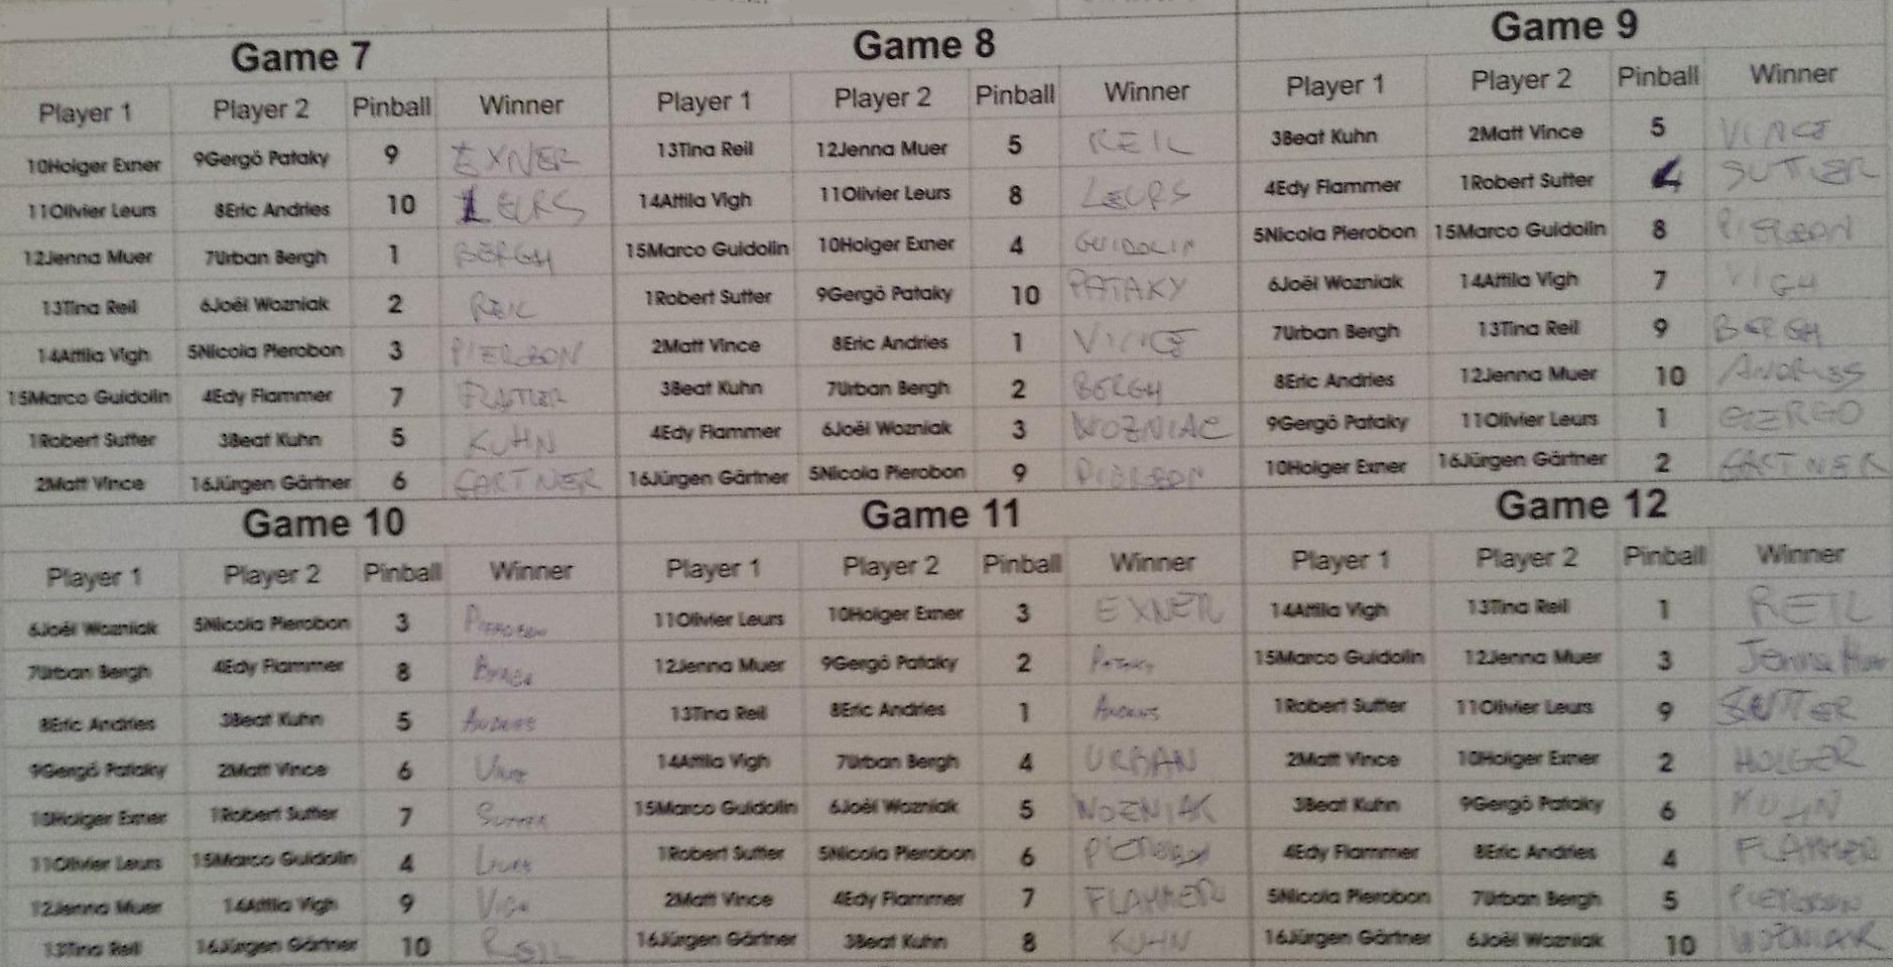 Game 7
Player 1 Player 2 Pinball Winner
10Holger Exner 9Gergö Pataky 9 EXNER
11Olivier Leurs 8Eric Andries 10 LEURS
12Jenna Muer 7Urban Bergh 1 BERGH
13Tina Reil 6Joël Wozniak 2 REIL
14Attila Vigh 5Nicola Pierobon 3 PIERBON
15Marco Guidolin 4Edy Flammer 7
1Robert Sutter 3Beat Kuhn 5 KUHN
2Matt Vince 16Jürgen Gärtner 6 GARTNER
Game 8
Player 1 Player 2 Pinball Winner
13Tina Reil 12Jenna Muer 5 REIL
14Attila Vigh 11Olivier Leurs 8 LEURS
15Marco Guidolin 10Holger Exner 4 GUIDOLIN
1Robert Sutter 9Gergö Pataky 10 PATAKY
2Matt Vince 8Eric Andries 1 VINCE
3Beat Kuhn 7Urban Bergh 2 BERGH
4Edy Flammer 6Joël Wozniak 3 WOZNIAC
16Jürgen Gärtner 5Nicola Pierobon 9
Game 9
Player 1 Player 2 Pinball Winner
3Beat Kuhn 2Matt Vince 5 VINCE
4Edy Flammer 1Robert Sutter 4 SUTTER
5Nicola Pierobon 15Marco Guidolin 8 PIEROBON
6Joël Wozniak 14Attila Vigh 7 VIGH
7Urban Bergh 13Tina Reil 9 BERGH
8Eric Andries 12Jenna Muer 10 ANDRIES
9Gergö Pataky 11Olivier Leurs 1 GERGO
10Holger Exner 16Jürgen Gärtner 2 GARTNER
Game 10
Player 1 Player 2 Pinball Winner
6Joël Wozniak 5Nicola Pierobon 3 PIEROBON
7Urban Bergh 4Edy Flammer 8 BERGH
8Eric Andries 3Beat Kuhn 5 ANDRIES
9Gergö Pataky 2Matt Vince 6 VINCE
10Holger Exner 1Robert Sutter 7 SUTTER
11Olivier Leurs 15Marco Guidolin 4 LEURS
12Jenna Muer 14Attila Vigh 9 VIGH
13Tina Reil 16Jürgen Gärtner 10 REIL
Game 11
Player 1 Player 2 Pinball Winner
11Olivier Leurs 10Holger Exner 3 EXNER
12Jenna Muer 9Gergö Pataky 2 PATAKY
13Tina Reil 8Eric Andries 1 ANDRIES
14Attila Vigh 7Urban Bergh 4 URBAN
15Marco Guidolin 6Joël Wozniak 5 WOZNIAK
1Robert Sutter 5Nicola Pierobon 6
2Matt Vince 4Edy Flammer 7 FLAMMER
16Jürgen Gärtner 3Beat Kuhn 8 KUHN
Game 12
Player 1 Player 2 Pinball Winner
14Attila Vigh 13Tina Reil 1 REIL
15Marco Guidolin 12Jenna Muer 3 Jenna Muer
1Robert Sutter 11Olivier Leurs 9 SUTTER
2Matt Vince 10Holger Exner 2 HOLGER
3Beat Kuhn 9Gergö Pataky 6 KUHN
4Edy Flammer 8Eric Andries 4 FLAMMER
5Nicola Pierobon 7Urban Bergh 5 PIEROBON
16Jürgen Gärtner 6Joël Wozniak 10 WOZNIAK